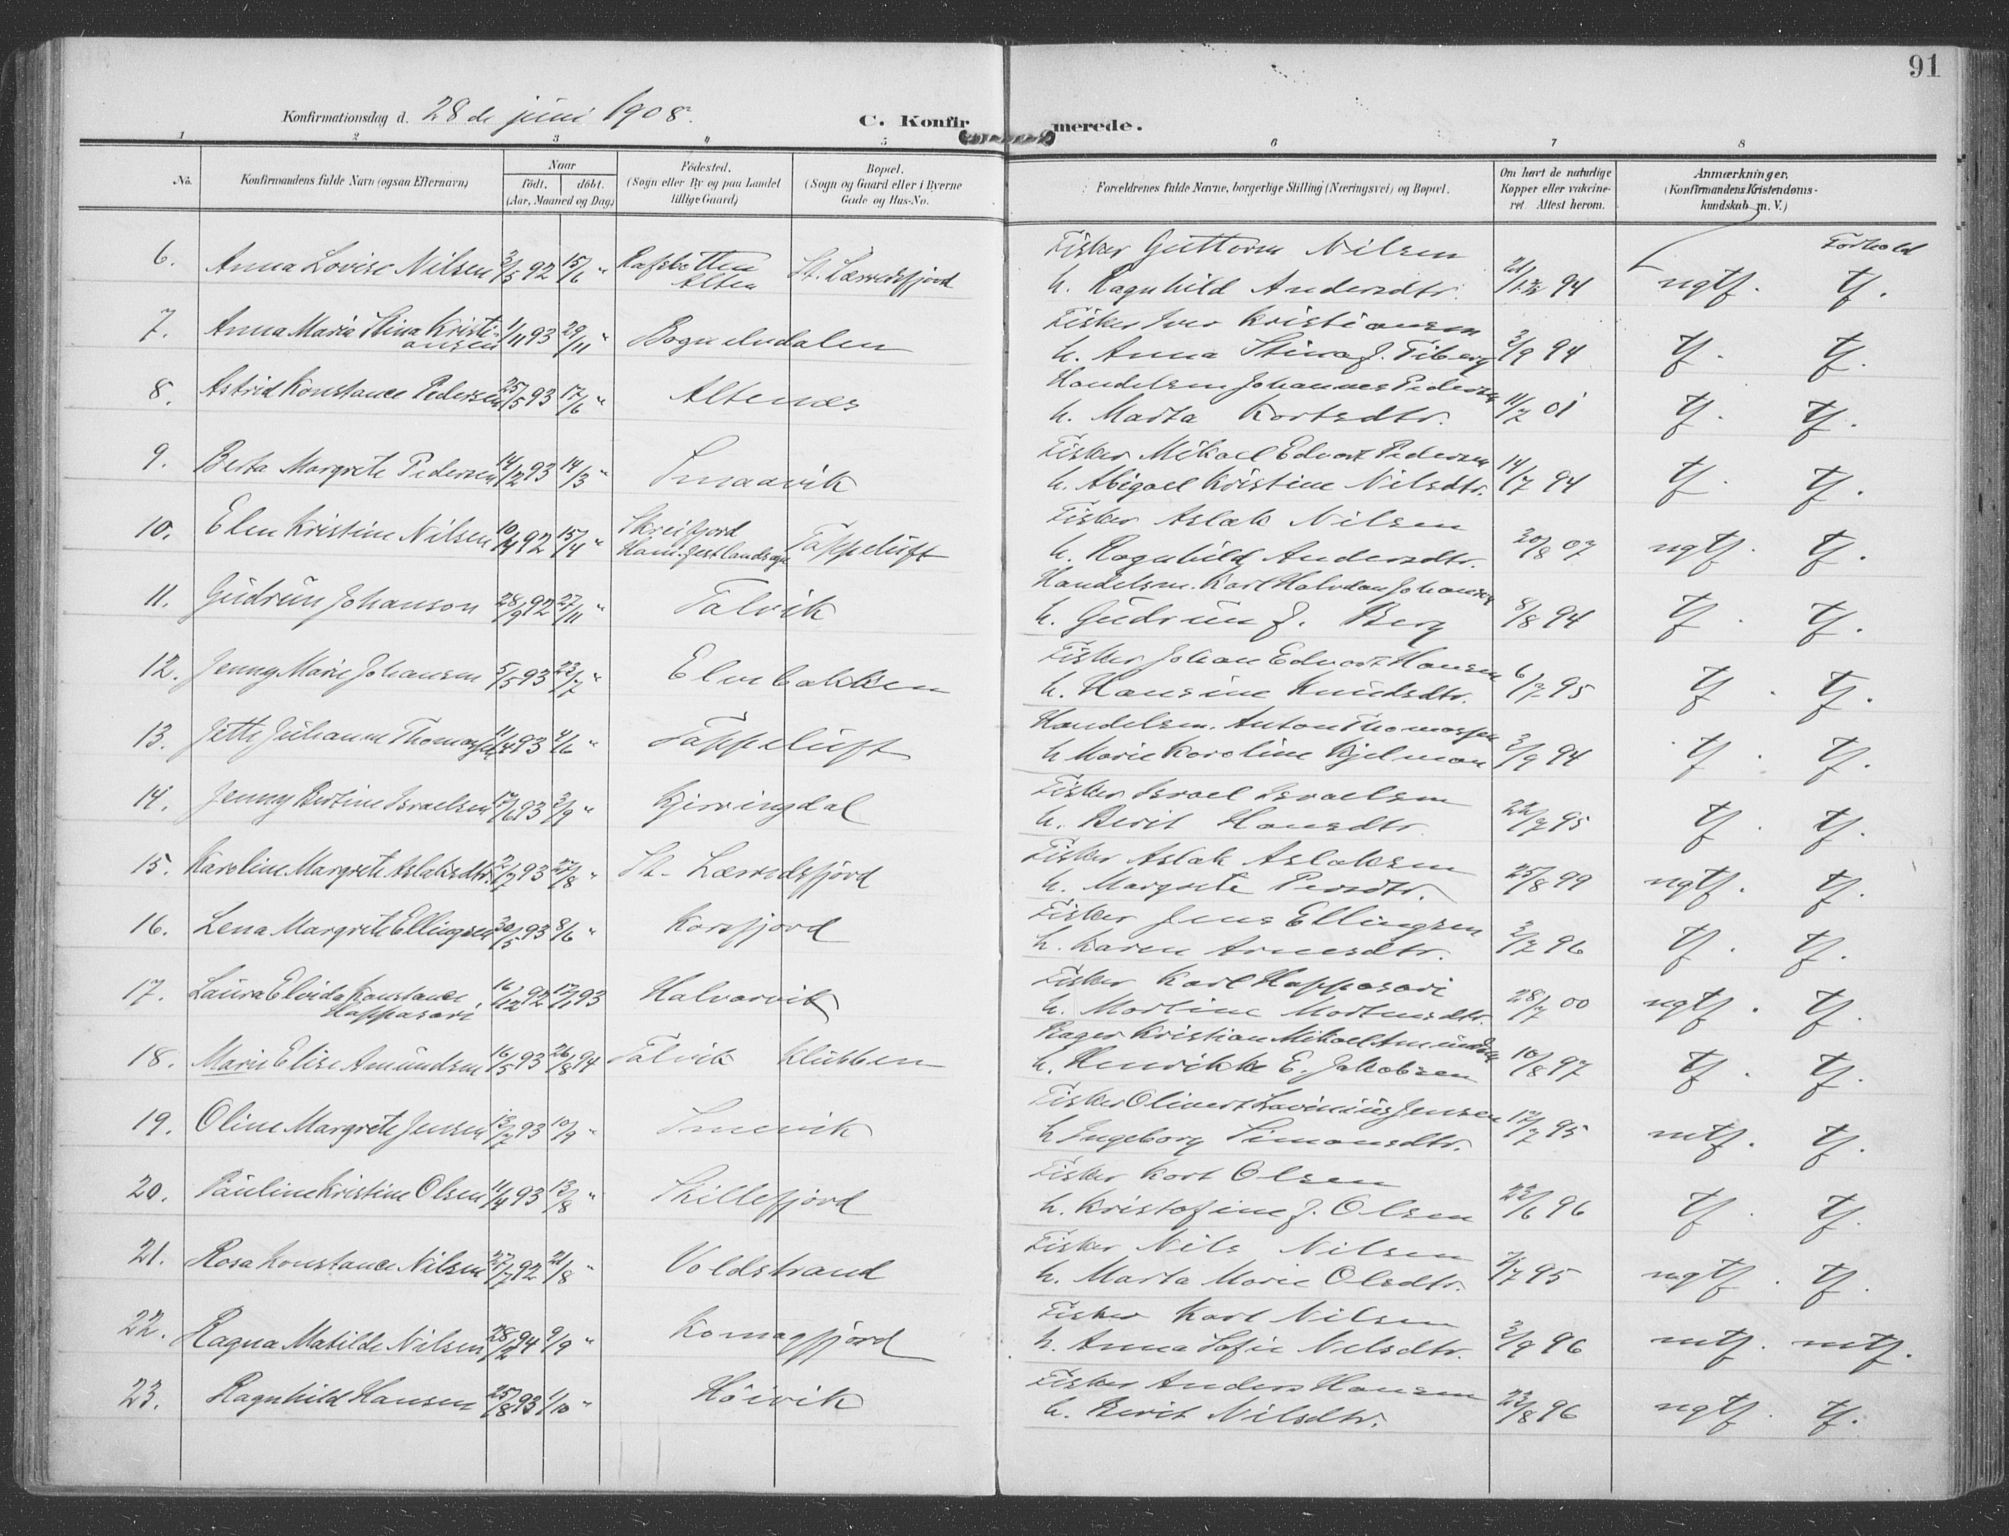 91
Konfirmationsdag d. 28de juni 1908.
C. Konfirmerede.
1 2 3 4 5 6 7 8
No.
Konfirmandens fulde Navn (ogsaa Efternavn)
Naar
födt. döbt.
(Aar, Maaned og Dag)
Födested.
(Sogn eller By og paa Landet
tillige Gaard)
Bopæl.
(Sogn og Gaard eller i Byerne
Gade og Hus-No.
Forældrenes fulde Navne, borgerlige Stilling (Næringsvei) og Bopæl.
Om havt de naturlige
Kopper eller vakcine-
ret Attest herom.
Anmærkninger.
(Konfirmandens Kristendoms-
kundskab m. V.)
Forhold
Fisker Guttorm Nilsen
6. Anna Lovise Nilsen 3/5 92 15/6 " Rafsbotten Alten St. Lærredsfjord h. Ragnhild Andersdtr. 21/12 94 ngtf. tf.
Fisker Iver Kristiansen
7. Anna Maria Stina Kristi-
ansen 1/11 93 29/11 " Bognelvdalen h. Anna Stina f. Fiberg 3/9 94 tf. tf.
Handelsm Johannes Pedersen
8. Astrid Konstance Pedersen 25/5 93 17/6 " Altenæs h. Marta Kortsdtr. 11/7 01 tf. tf.
Fisker Mikael Edvart Pedersen
9. Berta Margrete Pedersen 14/2 93 14/3 " Smaavik h. Abigael Kristine Nilsdtr. 14/7 94 tf. tf.
Fisker Aslak Nilsen
10. Elen Kristine Nilsen 10/4 92 15/4 " Skreifjord Ham.fest landsogn Tappeluft h. Ragnhild Andersdtr. 20/8 07 ngtf. tf.
Handelsm. Karl Halvdan Johansen
11. Gudrun Johanson 28/9 92 27/11 " Talvik h. Gudrun f. Berg 8/8 94 tf. tf.
Fisker Johan Edvart Hansen
12. Jenny Marie Johansen 5/5 93 23/7 " Elvebakken h. Hansine Knudsdtr. 6/7 95 tf. tf.
Handelsm. Anton Thomassen
13. Jette Juhanne Thomassen 11/4 93 4/6 " Tappeluft h. Marie Karoline Kjelman 3/9 94 tf. tf.
Fisker Israel Israelsen
14. Jenny Bertine Israelsen 17/6 93 3/9 " Kjerringdal h. Berit Hansdtr. 22/7 95 tf. tf.
Fisker Aslak Aslaksen
15. Karoline Margrete Aslaksdtr. 2/7 93 27/8 " St. Lærredsfjord h. Margrete Persdtr. 25/8 99 ngtf. tf.
Fisker Jens Ellingsen
16. Lena Margrete Ellingsen 30/5 93 8/6 " Korsfjord h. Karen Arnesdtr. 2/7 96 tf. tf.
Fisker Karl Happasari
17. Laura Elvida Konstance
Happasari 16/12 92 17/1 93 Halvarvik h. Martine Mortensdtr. 28/7 00 ngtf. tf.
Røger Kristian Mikael Amundsen
18. Marie Elise Amundsen 16/5 93 26/8 94 Talvik Klubben h. Henrikke E. Jakobsen 10/8 97 tf. tf.
Fisker Olivert Lavinius Jensen
19. Oline Margrete Jensen 13/7 93 10/9 " Smevik h. Ingeborg Simonsdtr. 17/7 95 mtf. tf.
Fisker Kort Olsen
20. Pauline Kristine Olsen 11/4 93 13/8 " Skillefjord h. Kristofine f. Olsen 22/6 96 tf. tf.
Fisker Nils Nilsen
21. Rosa Konstance Nilsen 27/7 92 21/8 " Voldstrand h. Marta Marie Olsdtr. 7/7 95 ngtf. tf.
Fisker Karl Nilsen
22. Ragna Matilde Nilsen 28/2 94 9/9 " Komagfjord h. Anna Sofie Nilsdtr. 3/9 96 mtf. mtf.
Fisker Anders Hansen
23. Ragnhild Hansen 25/8 93 1/10 " Höivik h. Berit Nilsdtr. 22/8 96 ngtf. tf.